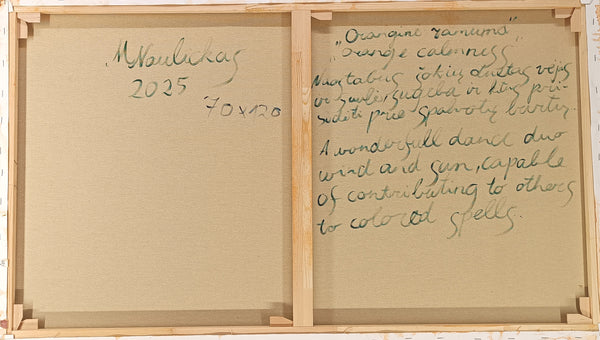 M Naulickas
2025
70x120
„Oranginė ramuma"
„Orange calmness"
Nuostabus šokių duetas vėjas
ir saulė, sugeba ir kitų pri-
sidėti prie spalvotų burtų.
A wonderfull dance duo
wind and sun, capable
of contributing to others
to colored spells.